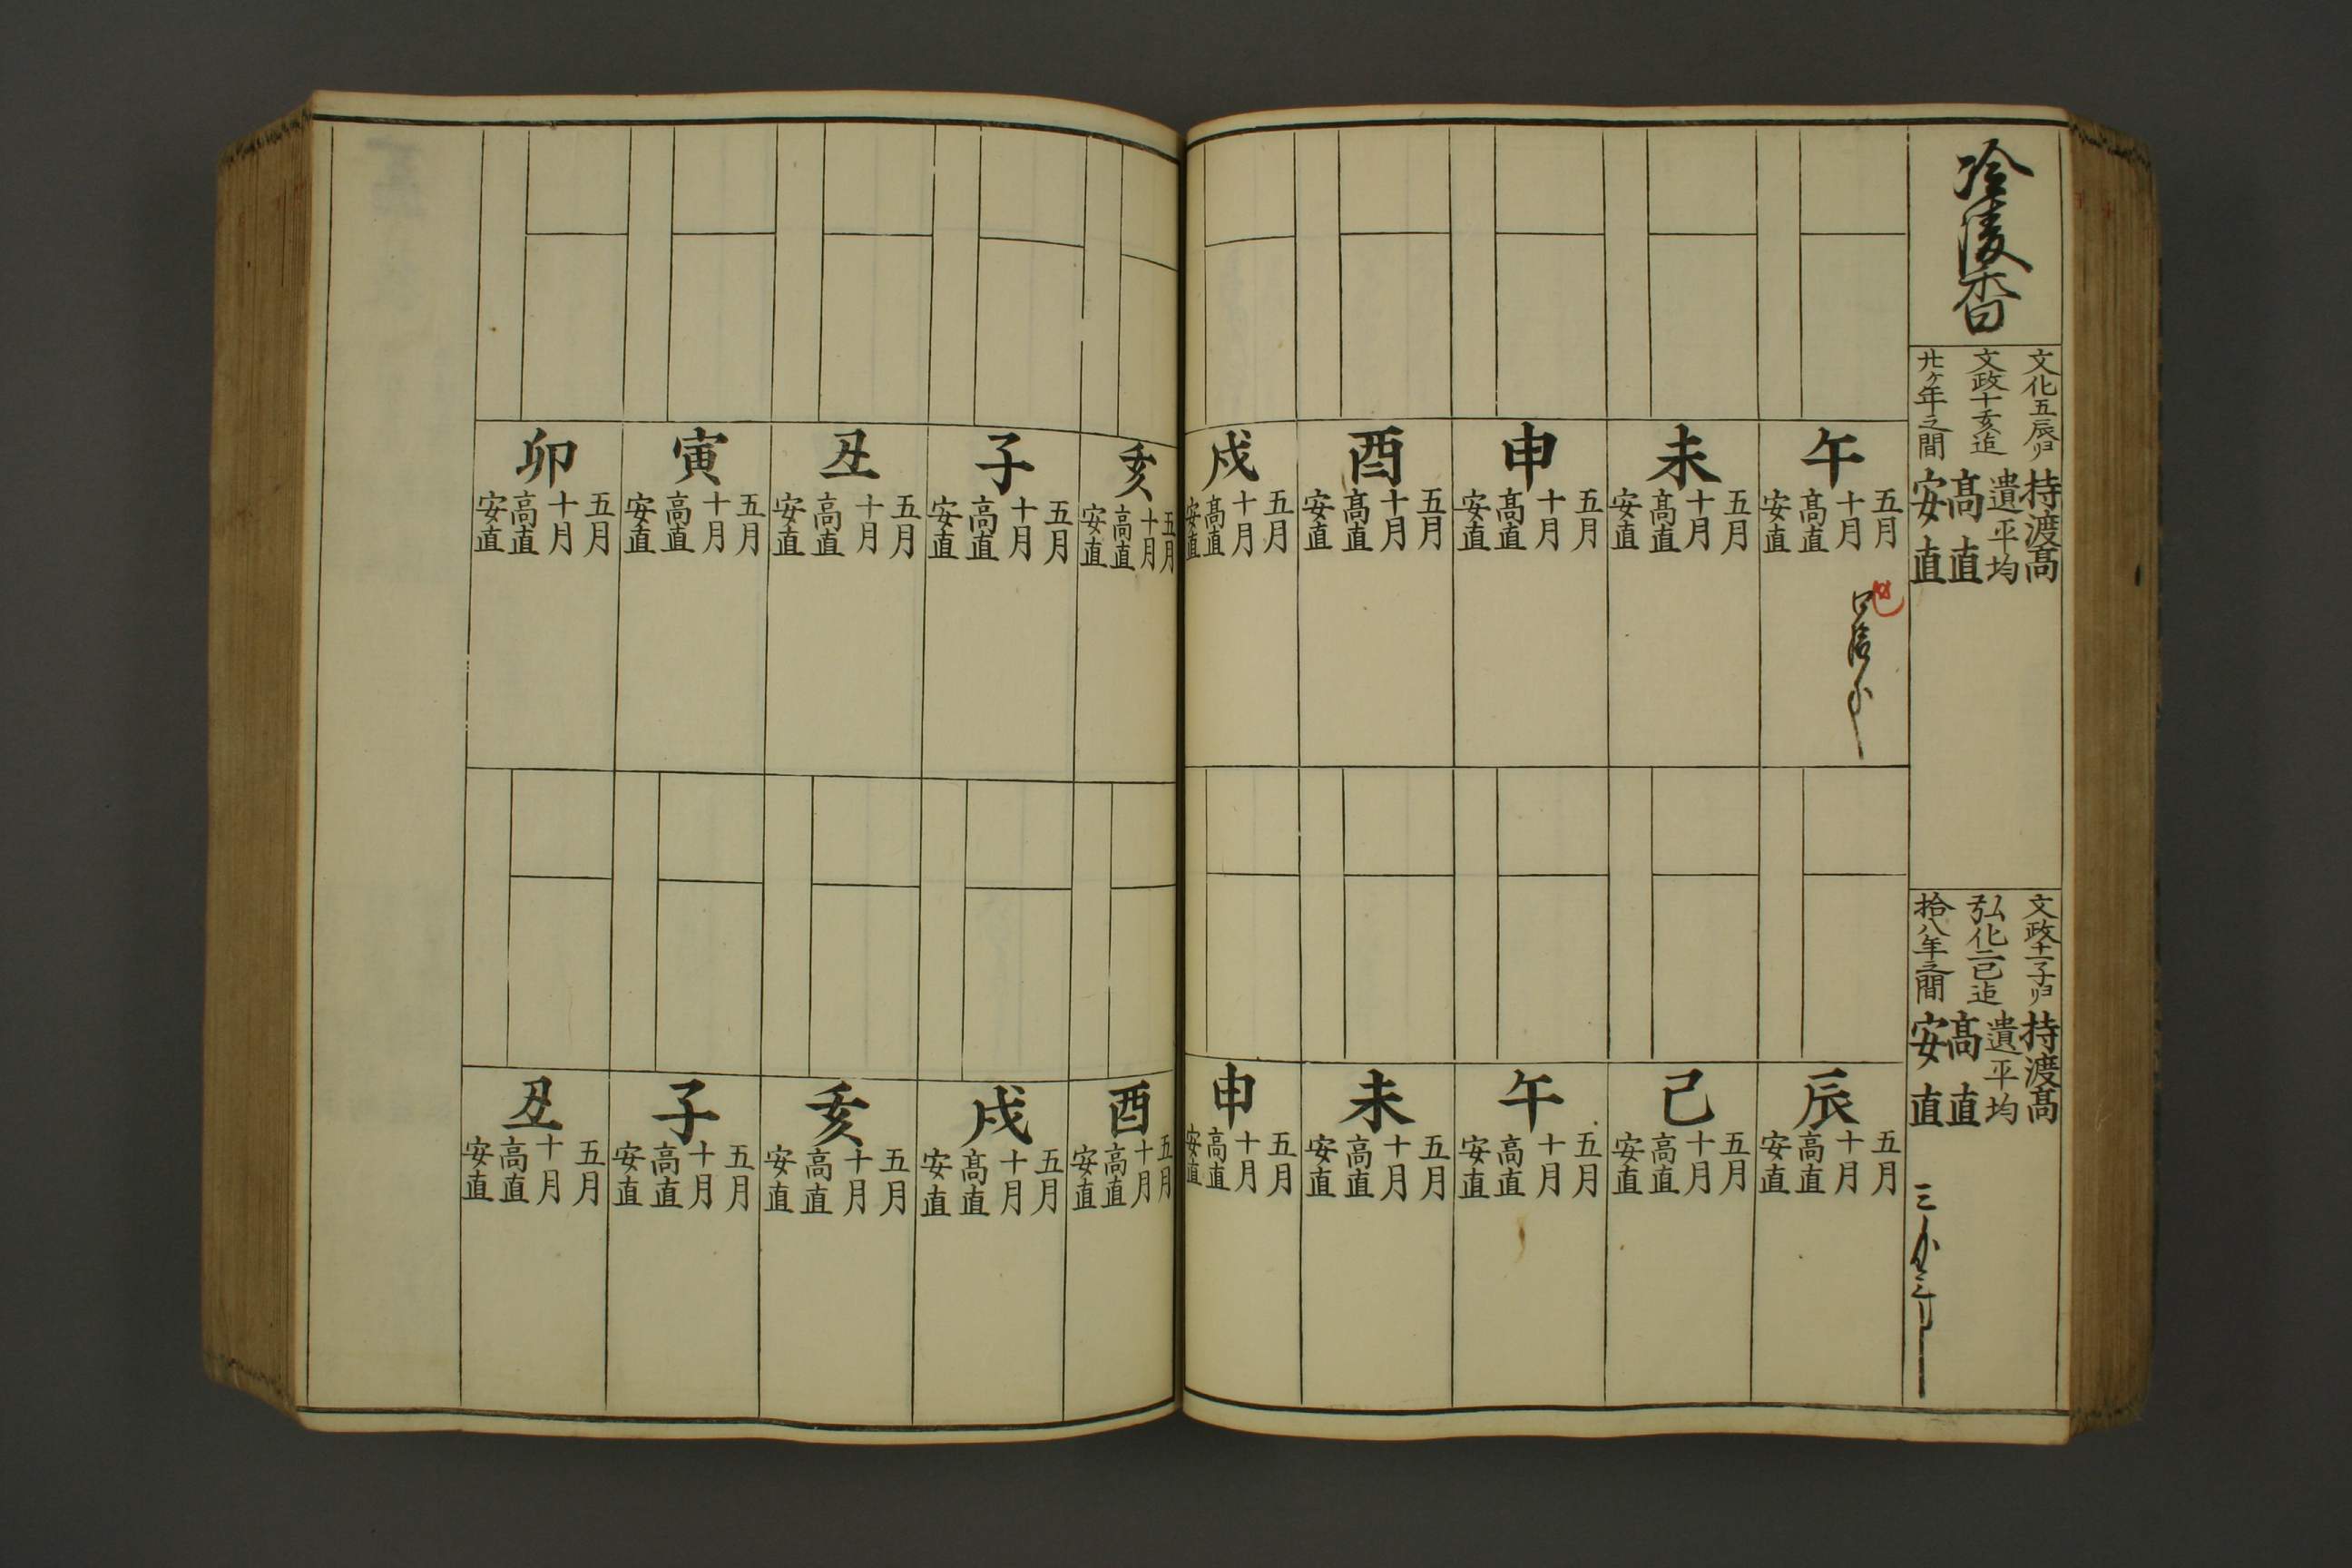 冷陵香
文化五辰ヨリ
文政十亥迠
廿ヶ年之間
持渡高
遣平均
高直
安直
文政十一子ヨリ
弘化二巳迠
拾八年之間
持渡高
遣平均
高直
安直
午
五月
十月
高直
安直
未
五月
十月
高直
安直
申
五月
十月
高直
安直
酉
五月
十月
高直
安直
戌
五月
十月
高直
安直
辰
五月
十月
高直
安直
巳
五月
十月
高直
安直
午
五月
十月
高直
安直
未
五月
十月
高直
安直
申
五月
十月
高直
安直
亥
五月
十月
高直
安直
子
五月
十月
高直
安直
丑
五月
十月
高直
安直
寅
五月
十月
高直
安直
卯
五月
十月
高直
安直
酉
五月
十月
高直
安直
戌
五月
十月
高直
安直
亥
五月
十月
高直
安直
子
五月
十月
高直
安直
丑
五月
十月
高直
安直